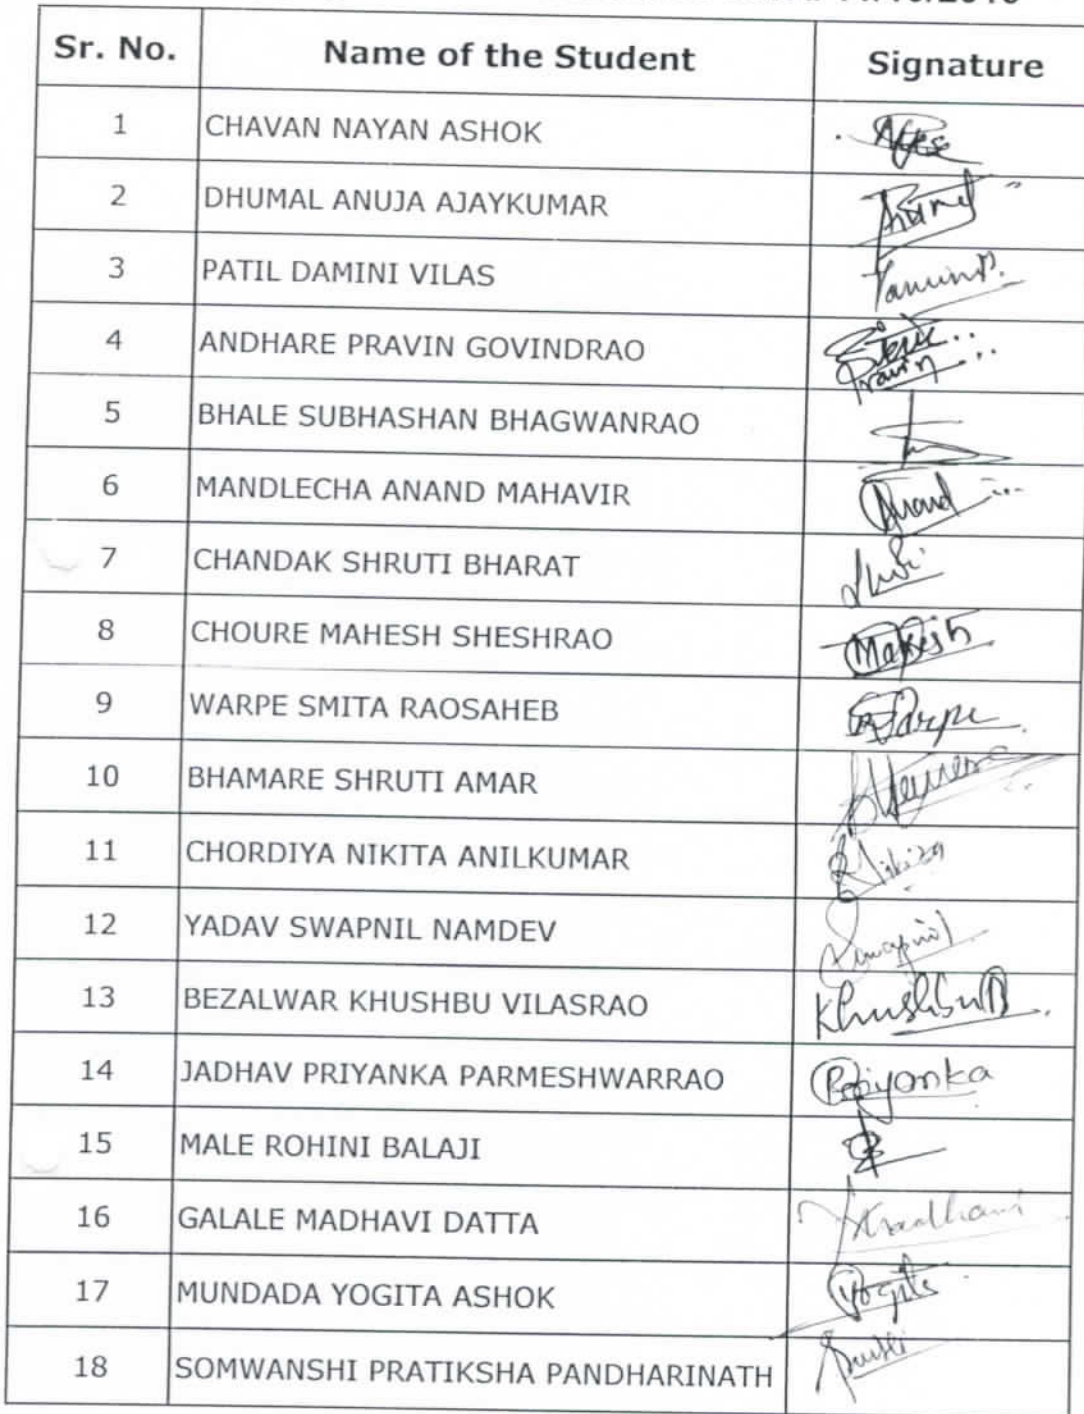 Sr. No. Name of the Student Signature
1 CHAVAN NAYAN ASHOK
2 DHUMAL ANUJA AJAYKUMAR
3 PATIL DAMINI VILAS
4 ANDHARE PRAVIN GOVINDRAO Pravin
5 BHALE SUBHASHAN BHAGWANRAO
6 MANDLECHA ANAND MAHAVIR Anand
7 CHANDAK SHRUTI BHARAT
8 CHOURE MAHESH SHESHRAO Mahesh
9 WARPE SMITA RAOSAHEB
10 BHAMARE SHRUTI AMAR
11 CHORDIYA NIKITA ANILKUMAR
12 YADAV SWAPNIL NAMDEV Swapnil
13 BEZALWAR KHUSHBU VILASRAO KhushbuB
14 JADHAV PRIYANKA PARMESHWARRAO Priyanka
15 MALE ROHINI BALAJI
16 GALALE MADHAVI DATTA
17 MUNDADA YOGITA ASHOK Yogita
18 SOMWANSHI PRATIKSHA PANDHARINATH